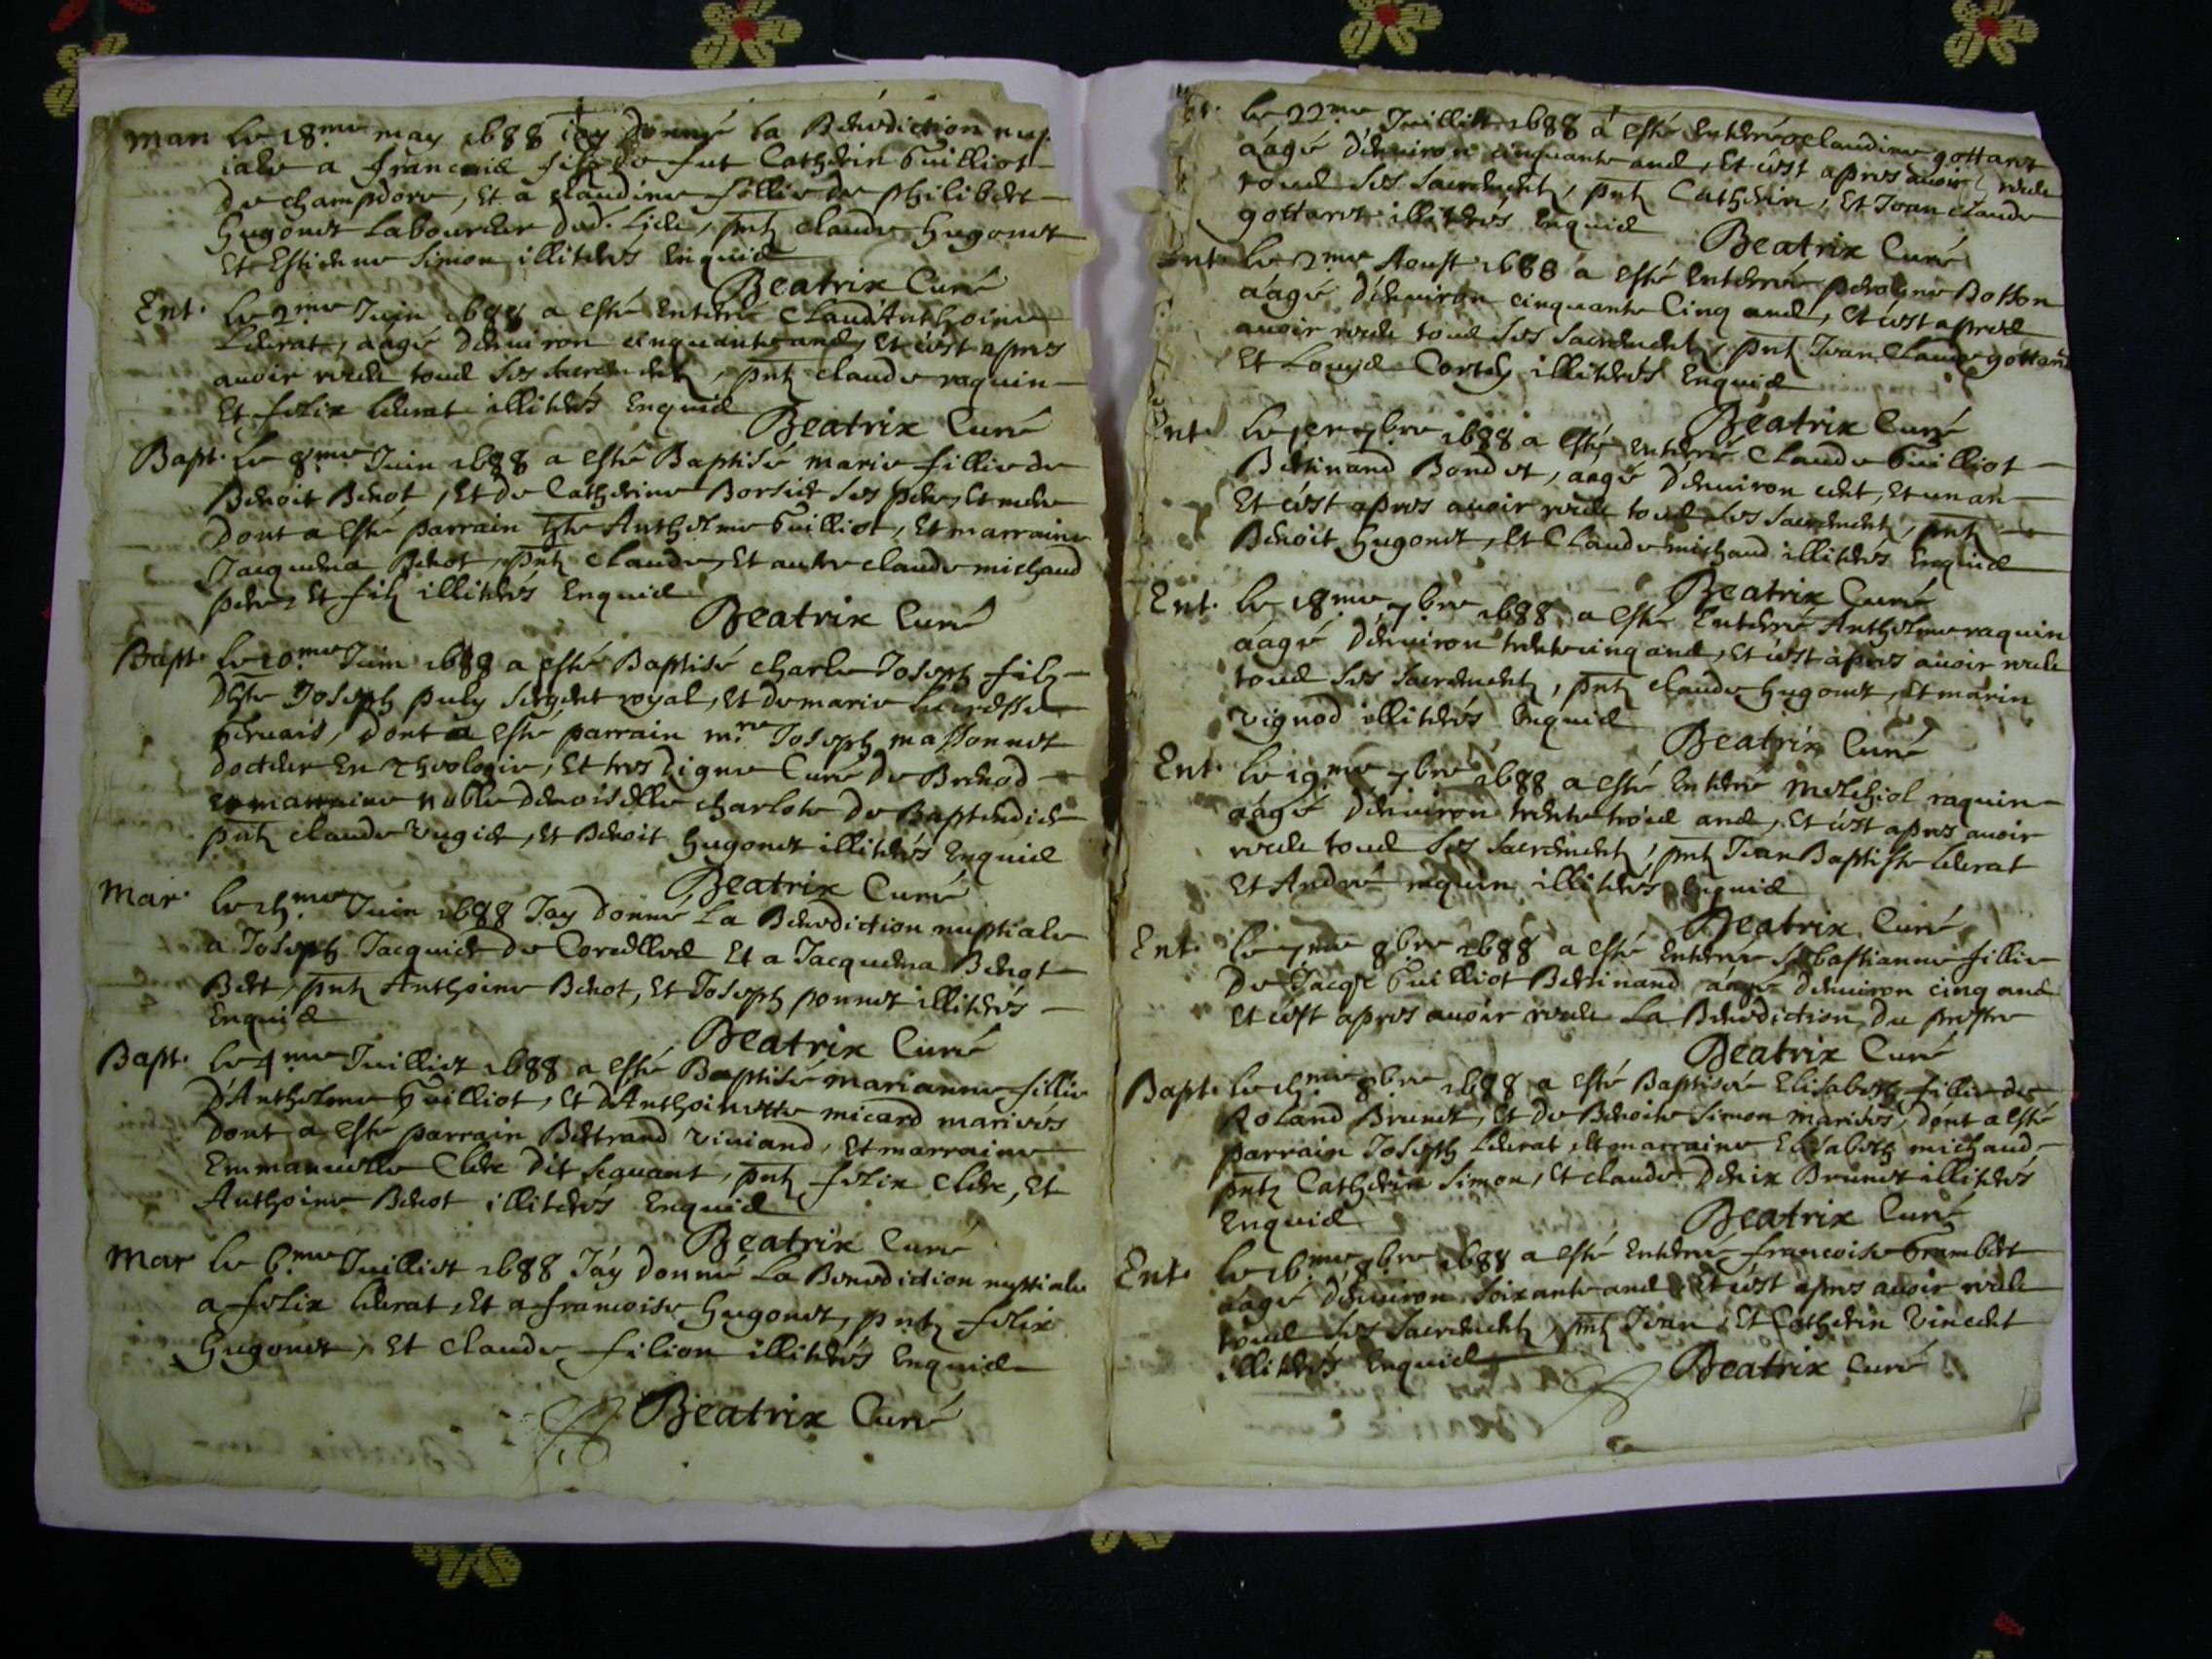 Mar le 18.me may 1688 iay donné la Benediction nup
iale a francois fils de fut Catherin Guilliot
de champdore, et a claudine fillie de philibert
hugonet Laboureur dud. lieu, pntz claude hugonet
et Estienne Simon illiterés Enquis
Beatrix Curé
Ent. le 2.me Juin 1688 a esté enterré Claud'Anthoine
Leurat, aagé d'environ cinquante ans, et c'est apres
auoir receu tous ses sacrements, pntz claude raquin
et felix leurat illiterés Enquis
Beatrix Curé
Bapt. le 8.me Juin 1688 a esté Baptisé marie fillie de
Benoit Benot, et de Catherine Borsiet ses pere, et mere
dont a esté parrain hste Anthelme Guilliot, et marraine
Jacquema Benot, pntz Claude, et autre claude michaud
pere, et filz illiterés Enquis
Beatrix Curé
Bapt. le 10.me Juin 1688 a esté Baptisé charle Joseph filz
d'hste Joseph puly sergent royal, et de marie
geruais, dont a esté parrain m.re Joseph massonnet
docteur en Theologie, et tres digne Curé de Brenod
et marraine noble demoiselle charlote de
pntz claude rugiet, et Benoit hugonet illiterés Enquis
Beatrix Curé
Mar. le 15.me Juin 1688 Jay donné La Benediction nuptiale
a Joseph Jacquiet de Corcelles et a Jacquema Benot
Bert, pntz Anthoine Benot, et Joseph ponnet illiterés
Enquis
Beatrix Curé
Bapt. le 4.me Juilliet 1688 a esté Baptisé marianne fillie
d'Anthelme Guilliot, et d'Anthoinette micard mariés
dont a esté parrain Bertrand viuiand, et marraine
Emmanuelle Clerc dit sequant, pntz felix clerc, et
Anthoine Benot illiterés Enquis
Beatrix Curé
Mar le 6.me Juilliet 1688 Jay donné La Benediction nuptiale
a felix leurat, et a francoise hugonet, pntz felix
hugonet, et claude filion illiterés Enquis
Beatrix Curé
le 22.me Juillet 1688 a esté enterrée claudine gottaret
aagé d'environ cinquante ans, et c'est apres auoir receu
tous ses sacrements, pntz Catherin, et Jean claude
gottaret illiterés Enquis
Beatrix Curé
Ent. le 2.me Aoust 1688 a esté enterrée perolyne Botton
aagé d'environ cinquante cinq ans, et c'est apres
auoir receu tous ses sacrements, pntz Jean Claude gottaret
et Louys illiterés Enquis
Beatrix Curé
Ent. le 1er 7bre 1688 a esté enterré Claude Guilliot
Bertinand Bondet, aagé d'environ cent, et un an
et c'est apres auoir receu tous ses sacrements, pntz
Benoit hugonet, et Claude michaud illiterés Enquis
Beatrix Curé
Ent. le 18.me 7bre 1688 a esté enterré Anthelme raquin
aagé d'environ trente cinq ans, et c'est apres auoir receu
tous ses sacrements, pntz claude hugonet, et marin
vignod illiterés Enquis
Beatrix Curé
Ent. le 19.me 7bre 1688 a esté enterré melchiol raquin
aagé d'environ trente trois ans, et c'est apres auoir
receu tous ses sacrements, pntz Jean Baptiste leurat
et André raquin illiterés Enquis
Beatrix Curé
Ent. le 7.me 8bre 1688 a esté enterrée sebastianne fillie
de Jacqs Guilliot Bertinand aagé d'environ cinq ans
et c'est apres auoir receu La Benediction du prestre
Beatrix Curé
Bapt. le 15.me 8bre 1688 a esté Baptisée Elisabeth fillie de
Roland Brunet, et de Benoite Simon mariés, dont a esté
parrain Joseph leurat, et marraine Elisabeth michaud
pntz Catherin Simon, et claude denix Brunet illiterés
Enquis
Beatrix Curé
Ent. le 16.me 8bre 1688 a esté enterrée francoise Grambert
aagé d'environ soixante ans, et c'est apres auoir receu
tous ses sacrements, pntz Jean, et Catherin vincent
illiterés Enquis
Beatrix Curé